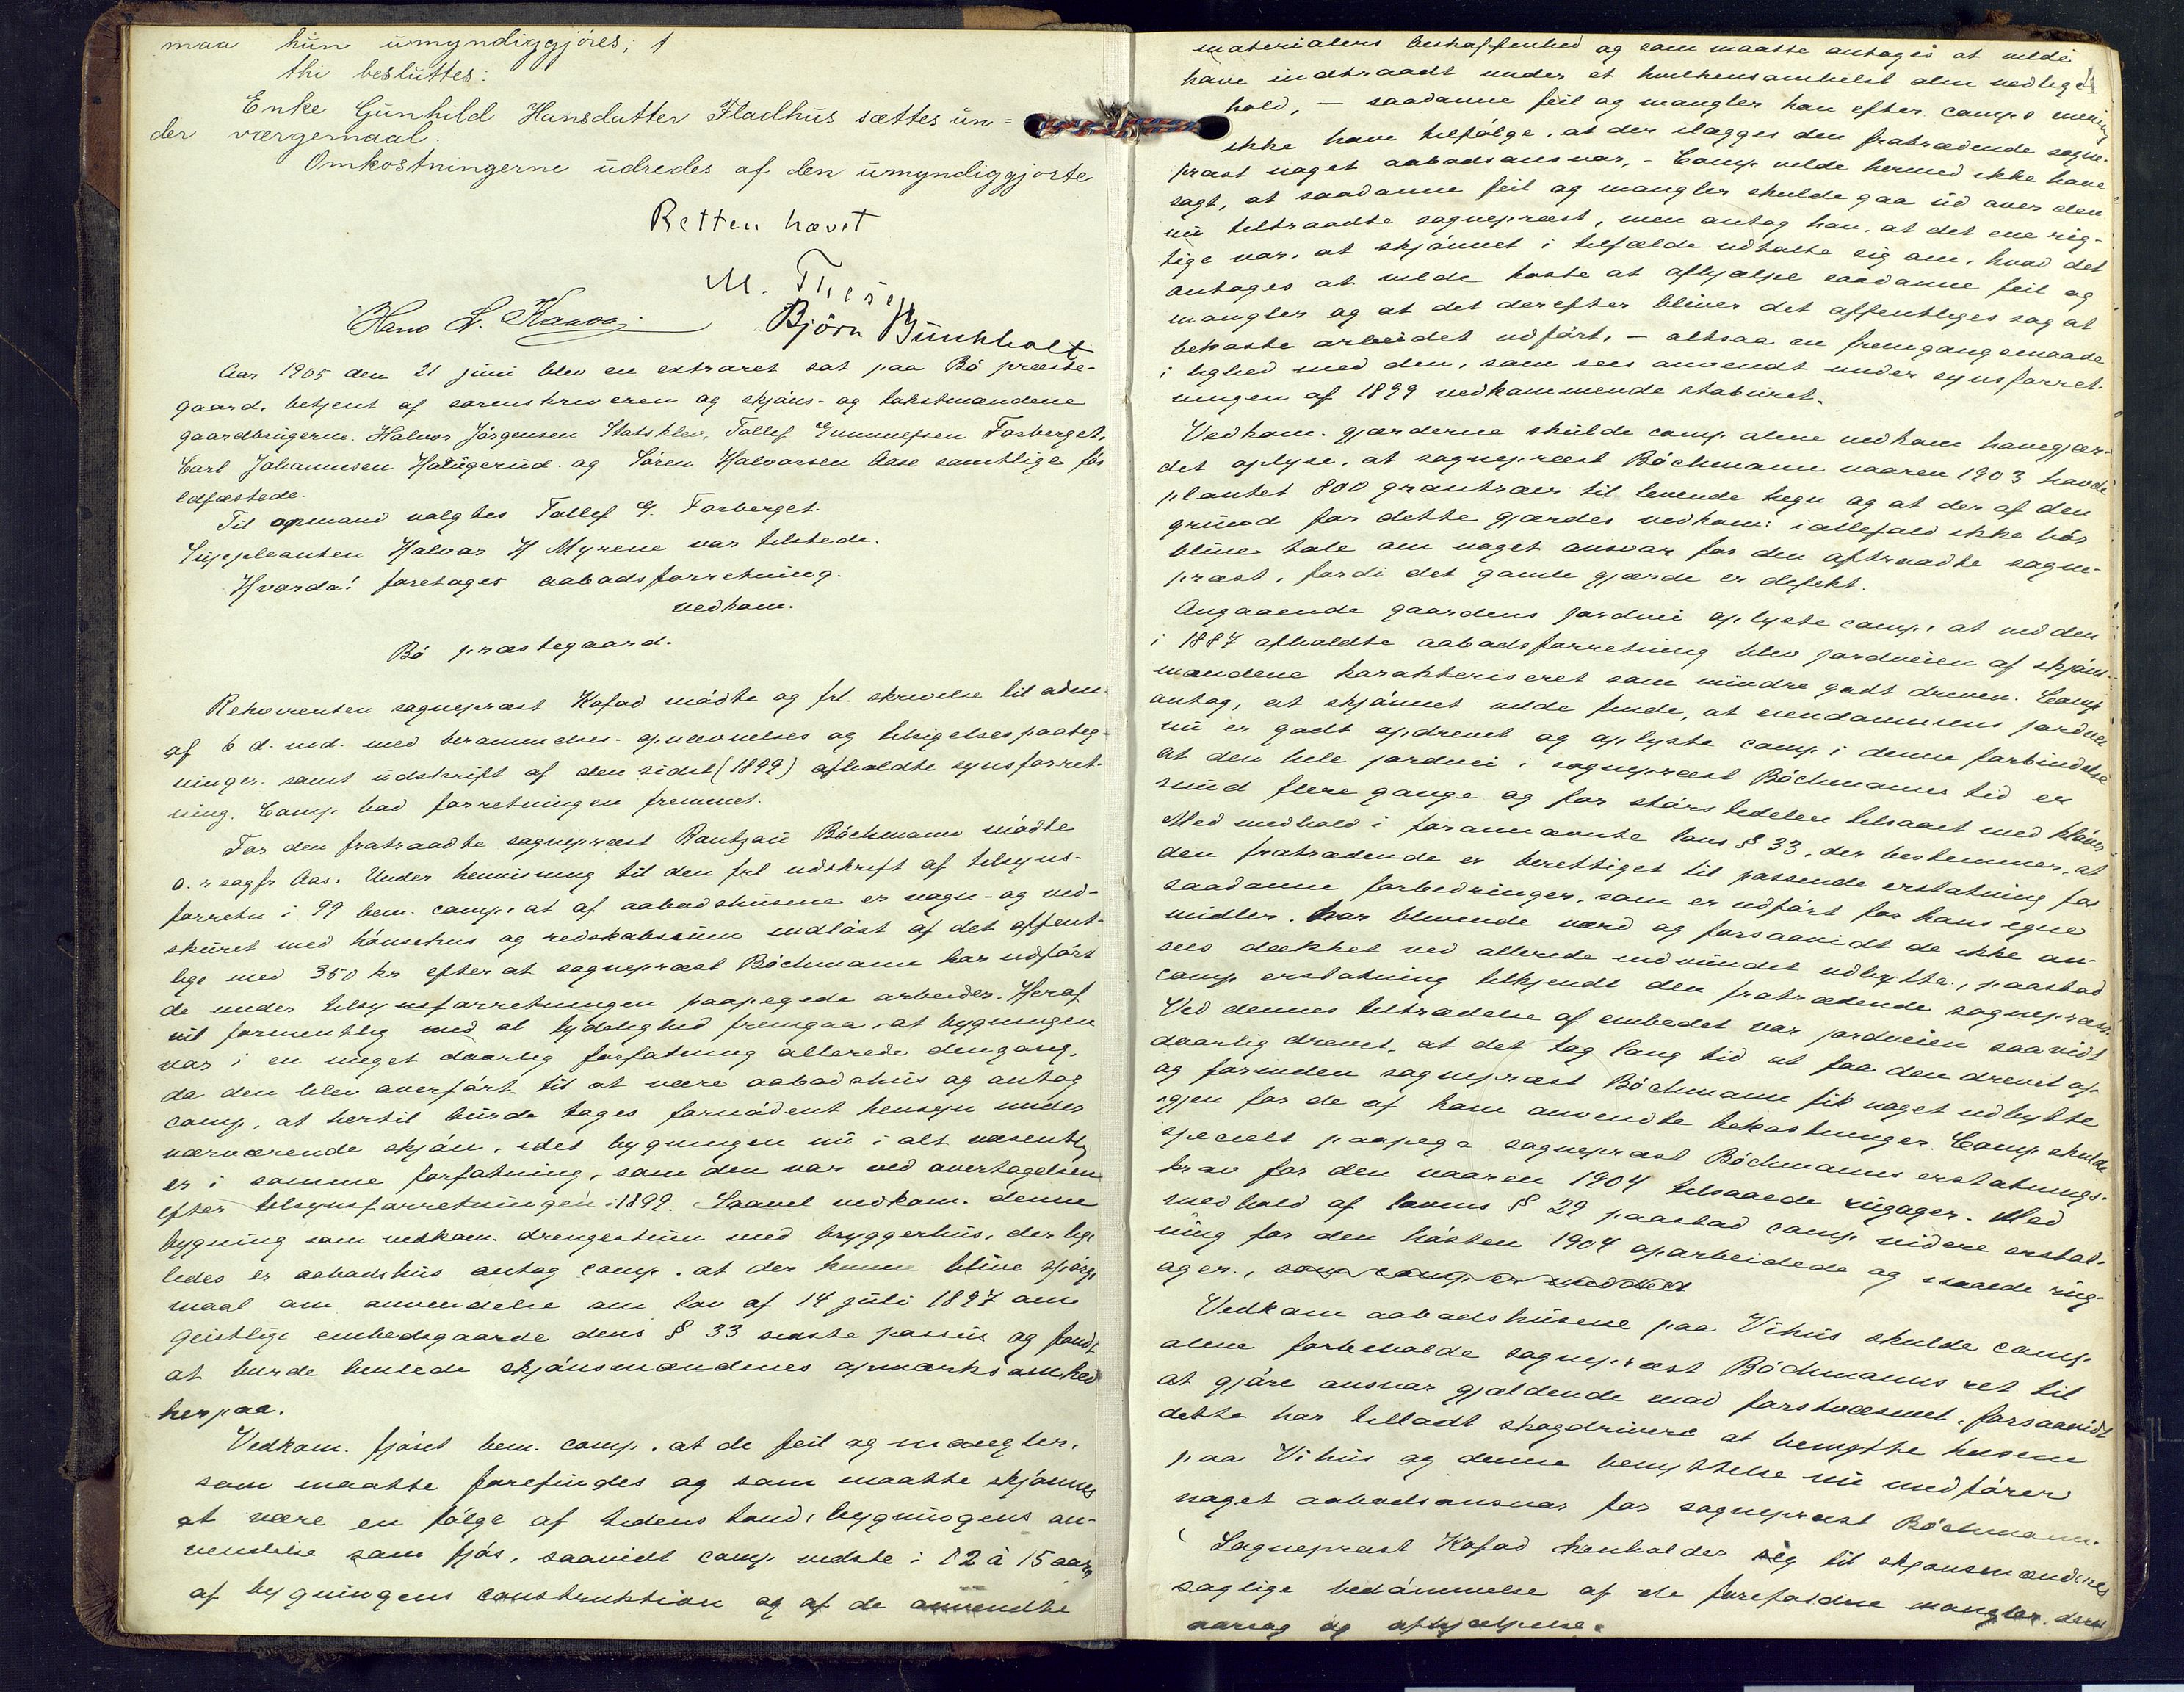 maa hun umyndiggjöres; 
thi besluttes:
Enke Gunhild Hansdatter Fladhus sættes un=
der værgemaal.
Omkostningerne udredes af den umyndiggjorte
Retten hævet
M. Thesen
Hans L. Kaasa. Björn Bunkholt
Aar 1905 den 21 juni blev en extraret sat paa Bö præste-
gaard. betjent af sorenskriveren og skjöns- og takstmændene
gaardbrugerne. Halvor Jörgensen Statsklev, Tollef Gunnulfsen Forberget,
Carl Johannesen Haugerud. og Sören Halvorsen Aase samtlige för
edfæstede.
Til opmand valgtes Tollef G. Forberget.
Suppleanten Halvor H Myrene var tilstede.
Hvorda! foretages aabodsforretning.
vedkom.
Bö præstegaard.
Rekvirenten sogneprest Kofod mödte og frl. skrivelse til adm.
af 6 d. md. med berammelses- opnævnelses og tilsigelsespaateg-
ninger. samt udskrift af den sidst (1899) afholdte synsforret-
ning. Comp. bad forretningen fremmet.
For den fratraadte sogneprest Rantzau Böchmann mödte
o. r sagfr Aas. Under henvisning til den frl udskrift af tilsyns-
forretn i 99 bem. comp. at af aabodshusene er vogn- og ved-
skuret med hönsehus og redskabsrum indlöst af det offent-
lige med 350 kr efter at sogneprest Böchmann har udfört
de under tilsynsforretningen paapegede arbeider. Heraf
vil formentlig med al tydelighed fremgaa at bygningen
var i en meget daarlig forfatning allerede dengang,
da den blev overfört til at være aabodshus og antog
comp, at hertil burde tages fornödent hensyn under
nærværende skjön, idet bygningen nu i alt væsentlig
er i samme forfatning, som den var ved overtagelsen
efter tilsynsforretningen i 1899. Saavel vedkom. denne
bygning som vedkom. drengestuen med bryggerhus, der lige
ledes er aabodshus antog comp. at der kunne blive spörgs
maal om anvendelse om lov af 14 juli 1897 om
geistlige embedsgaarde dens § 33 sidste passus og fandt
at burde henlede skjönsmændenes opmærksomhed
herpaa.
Vedkom. fjöset bem. comp. at de feil og mangler,
som maatte forefindes og som maatte skjönnes
at være en fölge af tidens tand, bygningens an-
vendelse som fjös, saavidt comp. vidste i 12 à 15 aar,
af bygningens construktion og af de anvendte
materialers beskaffenhed og som maatte antages at vilde
have indtraadt under et hvilkensomhelst alm vedlige
hold, — saadanne feil og mangler kan efter comps mening
ikke have tilfölge, at der ilægges den fratrædende sogne-
prest noget aabodsansvar, - Comp vilde hermed ikke have
sagt, at saadanne feil og mangler skulde gaa ud over den
nu tiltraadte sogneprest, men antog han, at det ene rig-
tige var, at skjönnet i tilfælde udtalte sig om, hvad det
antages at vilde koste at afhjælpe saadanne feil og
mangler og at det derefter bliver det offentliges sag at
bekoste arbeidet udfört, — altsaa en fremgangsmaade
i lighed med den, som sees anvendt under synsforret-
ningen af 1899 vedkommende stabüret.
Vedkom. gjærderne skulde comp. alene vedkom havegjær-
det oplyse, at sogneprest Böchmann vaaren 1903 havde
plantet 800 grantrær til levende hegn og at der af den
grund for dette gjærdes vedkom: iallefald ikke bör
blive tale om noget ansvar for den aftraadte sogne-
prest, fordi det gamle gjærde er defekt.
Angaaende gaardens jordvei oplyste comp. at ved den
i 1887 afholdte aabodsforretning blev jordveien af skjöns-
mændene karakteriseret som mindre godt dreven. Comp
antog, at skjönnet vilde finde, at eiendommens jordvei
nu er godt opdrevet og oplyste comp i denne forbindelse
at den hele jordvei i sogneprest Böchmanns tid er
snud flere gange og for störstedelen tilsaaet med klöver
Med medhold i forannævnte lovs § 33, der bestemmer, at
den fratrædende er berettiget til passende erstatning for
saadanne forbedringer, som er udfört for hans egne
midler. har blivende værd og forsaavidt de ikke an-
sees dækket ved allerede indvundet udbytte., paastod
comp erstatning tilkjendt den fratrædende sogneprest.
Ved dennes tiltrædelse af embedet var jordveien saavidt
daarlig drevet, at det tog lang tid at faa den drevet op
og forinden sogneprest Böchmann fik noget udbytte
igjen for de af ham anvendte bekostninger. Comp skulde
specielt paapege sogneprest Böchmanns erstatnings-
krav for den vaaren 1904 tilsaaede rugager. Med
medhold af lovens § 29 paastod comp videre erstat-
ning for den hösten 1904 oparbeidede og saaede rug-
ager.,
Vedkom aabodshusene paa Vihus skulde comp
alene forbeholde sogneprest Böchmanns ret til
at gjöre ansvar gjældende mod forstvæsenet. forsaavidt
dette har tilladt skogdrivere at benytte husene
paa Vihus og denne benyttelse nu medförer
noget aabodsansvar for sogneprest Böchmann.
Sogneprest Kofod henholder sig til skjönsmændenes
saglige bedömmelse af de forefaldne mangler. deres
aarsag og afhjælpelse.